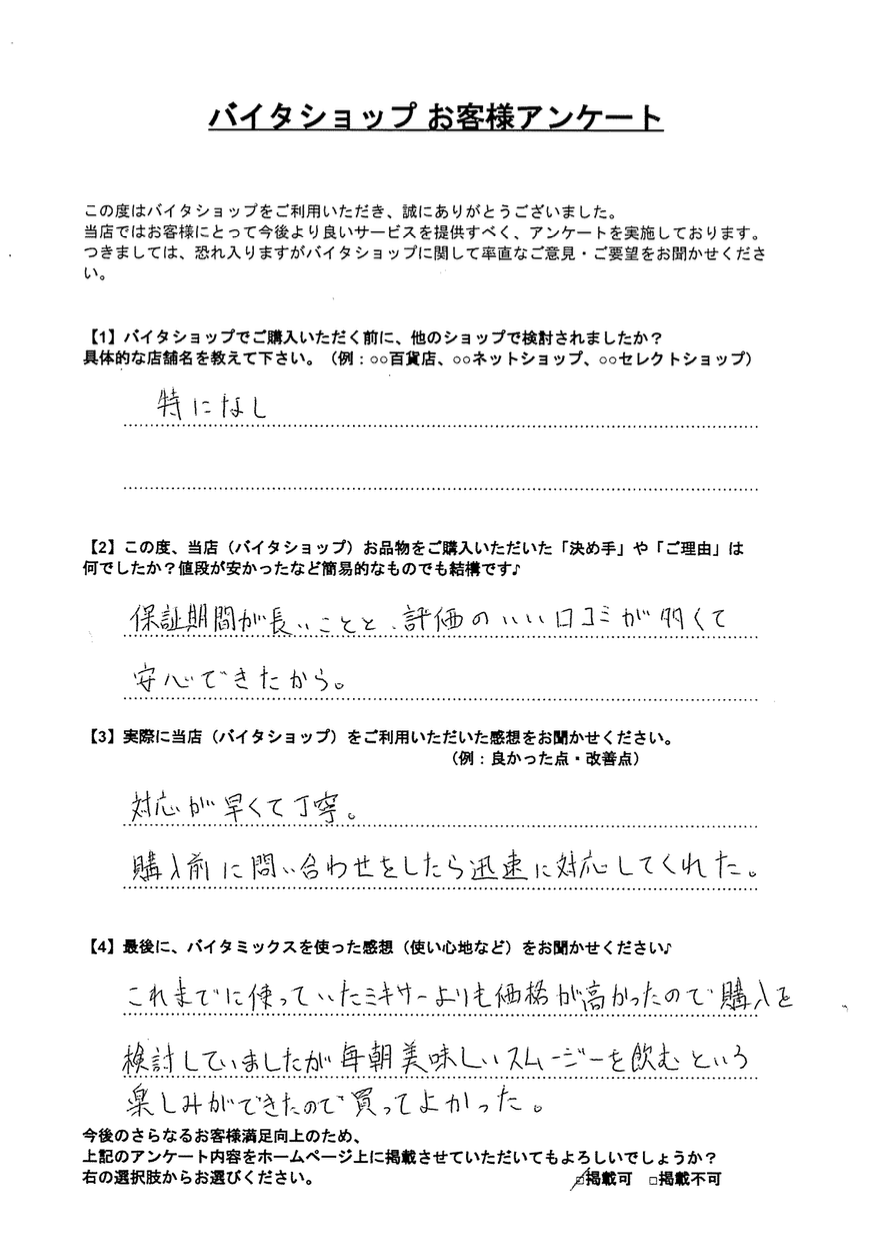 バイタショップ お客様アンケート
この度はバイタショップをご利用いただき、誠にありがとうございました。
当店ではお客様にとって今後より良いサービスを提供すべく、アンケートを実施しております。
つきましては、恐れ入りますがバイタショップに関して率直なご意見・ご要望をお聞かせくださ
い。
【1】バイタショップでご購入いただく前に、他のショップで検討されましたか？
具体的な店舗名を教えて下さい。（例：○○百貨店、○○ネットショップ、○○セレクトショップ）
特になし
【2】この度、当店（バイタショップ）お品物をご購入いただいた「決め手」や「ご理由」は
何でしたか？値段が安かったなど簡易的なものでも結構です♪
保証期間が長いことと、評価のいい口コミが多くて
安心できたから。
【3】実際に当店（バイタショップ）をご利用いただいた感想をお聞かせください。
（例：良かった点・改善点）
対応が早くて丁寧。
購入前に問い合わせをしたら迅速に対応してくれた。
【4】最後に、バイタミックスを使った感想（使い心地など）をお聞かせください♪
これまでに使っていたミキサーよりも価格が高かったので購入を
検討していましたが毎朝美味しいスムージーを飲むという
楽しみができたので買ってよかった。
今後のさらなるお客様満足向上のため、
上記のアンケート内容をホームページ上に掲載させていただいてもよろしいでしょうか？
右の選択肢からお選びください。 □掲載可 □掲載不可